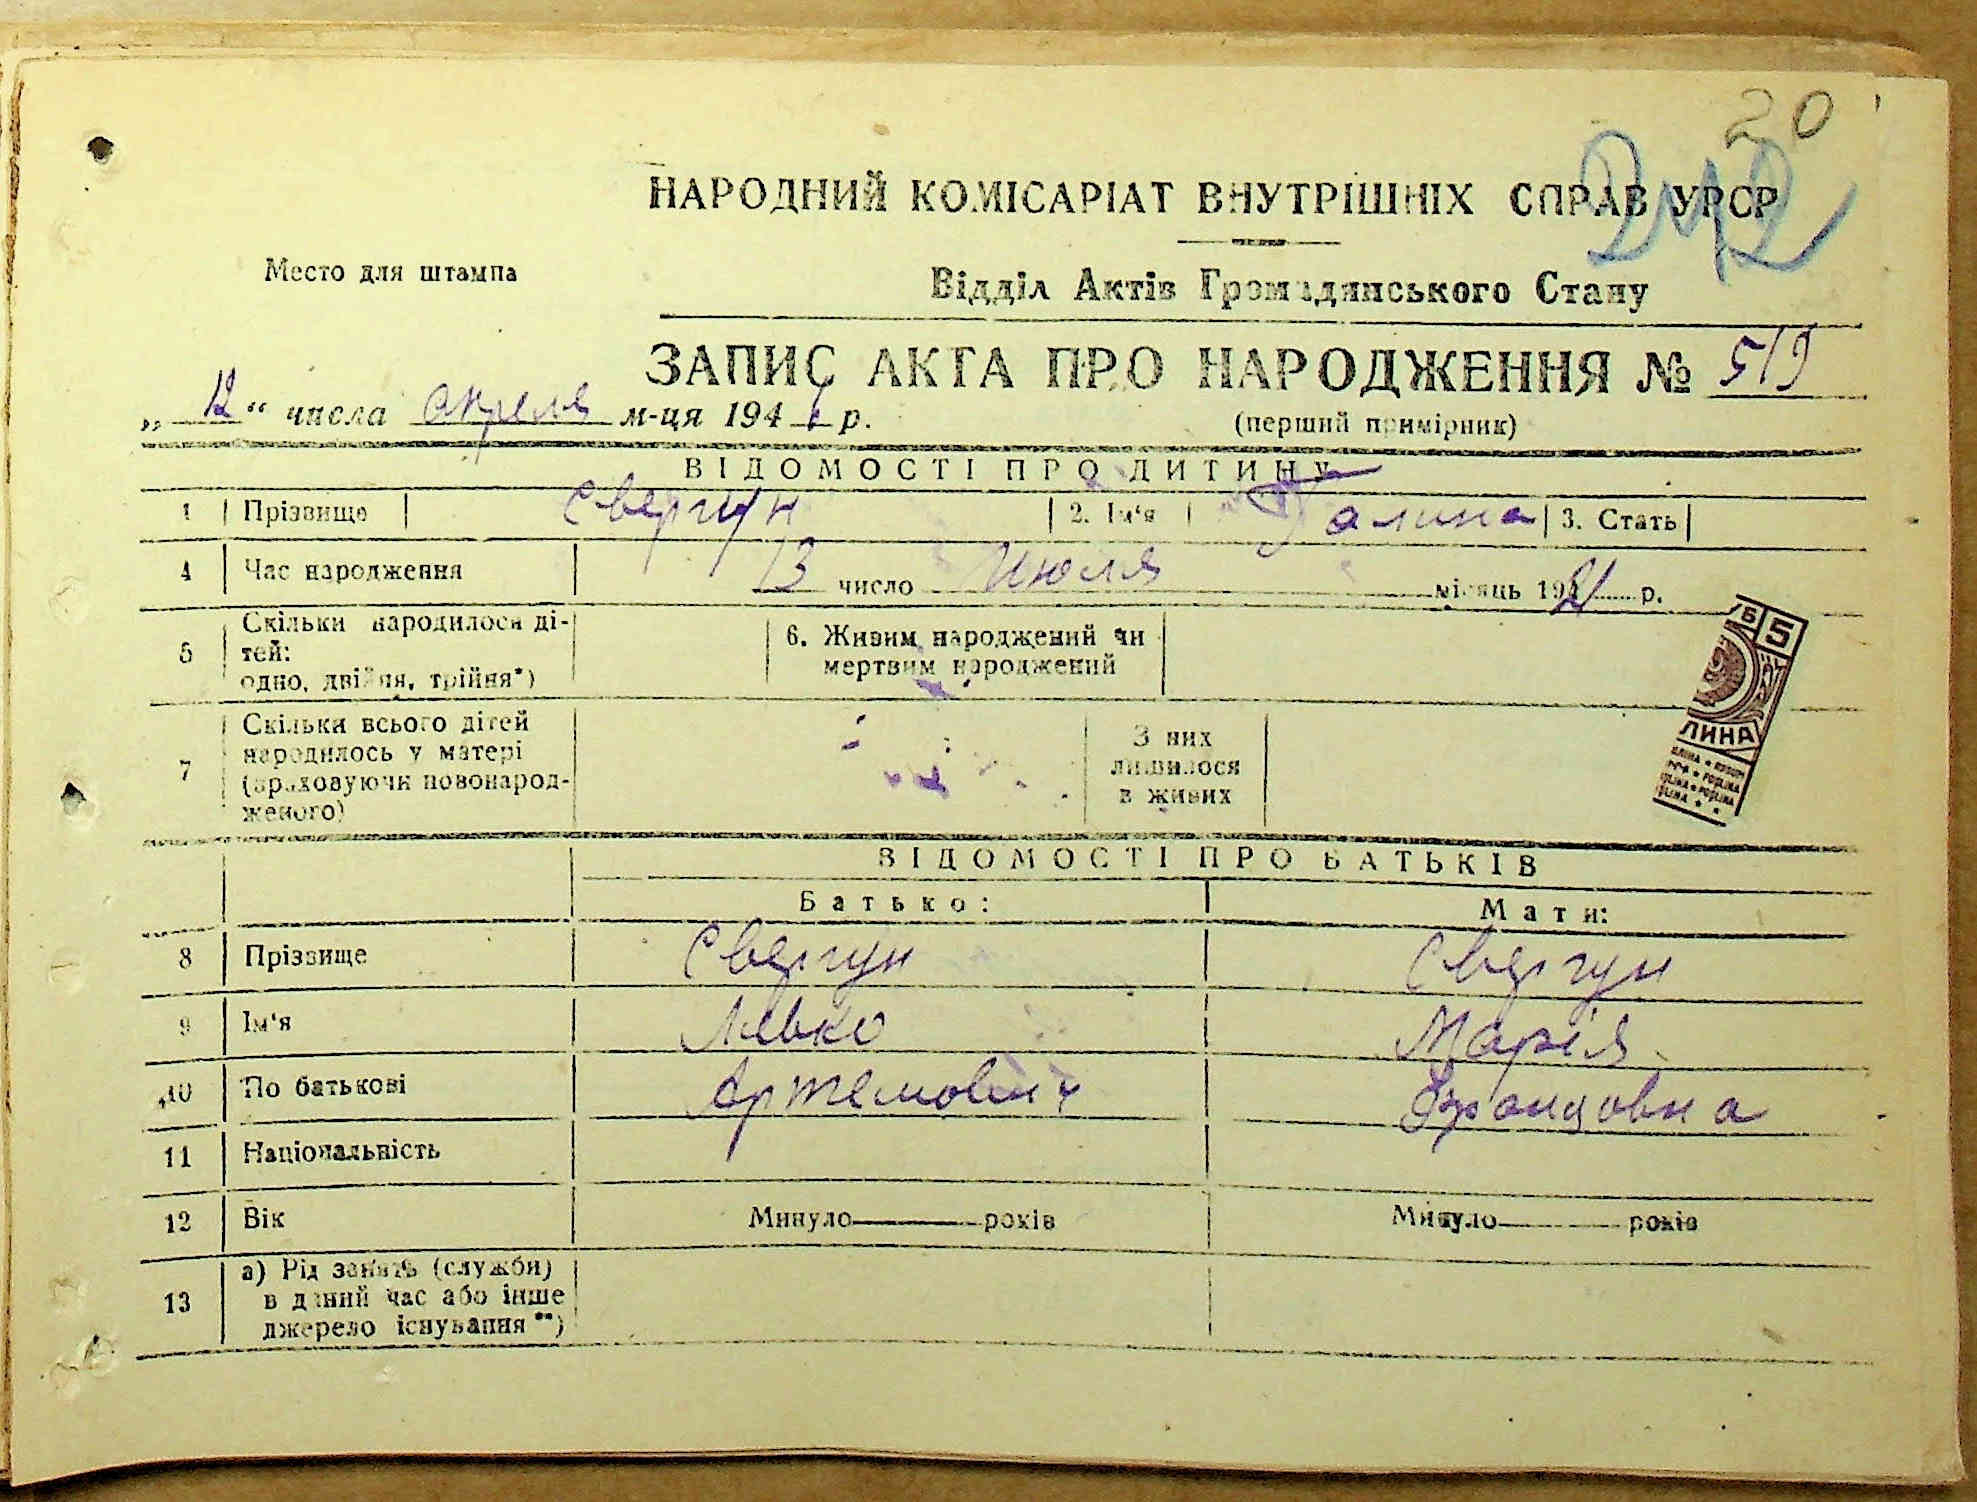 20
242
НАРОДНИЙ КОМІСАРІАТ ВНУТРІШНІХ СПРАВ УРСР
Место для штампа
Відділ Актів Громадянського Стану
ЗАПИС АКТА ПРО НАРОДЖЕННЯ № 519
„12“ числа апреля м-ця 194 р.
(перший примірник)
ВІДОМОСТІ ПРО ДИТИНУ
1 Прізвище Свергун 2. Ім'я Галина 3. Стать
4 Час народження 13 число Июля місяць 19 р.
5 Скільки народилося ді-
тей:
одно, двійня, трійня*)
6. Живим народжений чи
мертвим народжений
7 Скільки всього дітей
народилось у матері
(враховуючи новонарод-
женого)
З них
лишилося
в живих
5
ЛИНА
ВІДОМОСТІ ПРО БАТЬКІВ
Батько: Мати:
8 Прізвище Свергун Свергун
9 Ім'я Левко Марія
10 По батькові Артемович Францовна
11 Національність
12 Вік Минуло років Минуло років
13 а) Рід занять (служби)
в даний час або інше
джерело існування**)